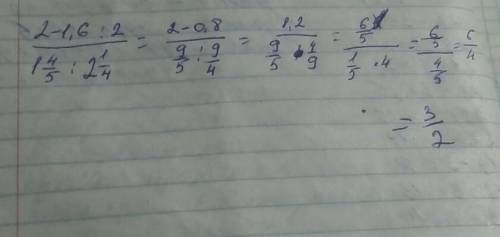 (2-1,6:2)/(1 4/5 : 2 1/4) = (2-0,8)/(9/5 : 9/4) = 1,2/(9/5 · 4/9) = (6/5)/(1/5 · 4) = (6/5)/(4/5) = 6/4
= 3/2